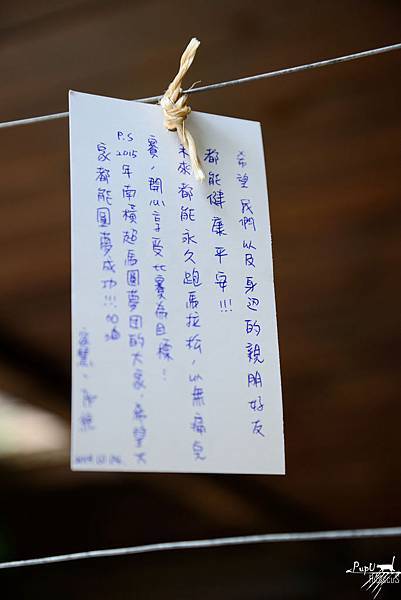 希望我們以及身邊的親朋好友
都能健康平安!!!
未來都能永久跑馬拉松，以無痛完
賽，開心享受比賽為目標！
P.S 2015年南橫超馬圓夢團的大家，希望大
家都能圓夢成功!!! 加油
PupU